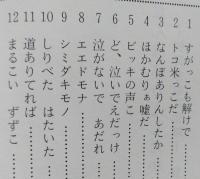 1 すがっこも解けで
2 トコ米っこだ
3 なんぼありんしたか
4 ほかむりぁ嘘だ
5 ビッキの声こ
6 ど、泣いでえだっけ
7 泣がないで あだれ
8 エエドモナ
9 シミダキモノ
10 しりべた はたいた
11 道ありてれば
12 まるこい ずずこ